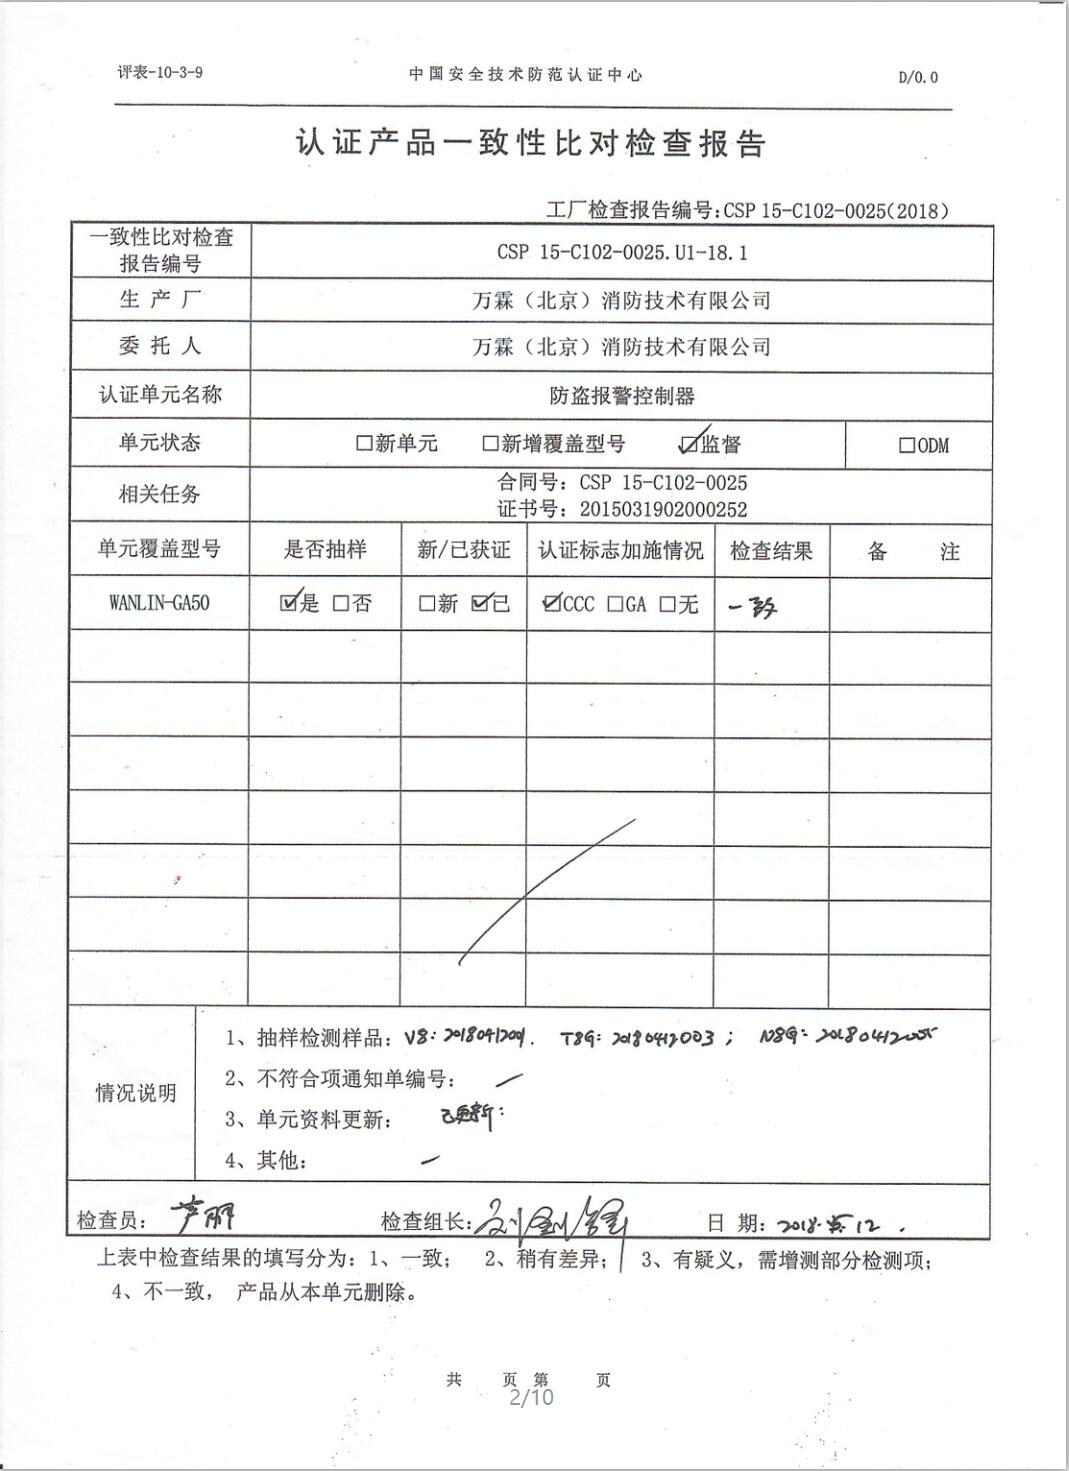 评表-10-3-9 中国安全技术防范认证中心 D/0.0
认证产品一致性比对检查报告
工厂检查报告编号:CSP 15-C102-0025(2018)
一致性比对检查报告编号 CSP 15-C102-0025.U1-18.1
生产厂 万霖（北京）消防技术有限公司
委托人 万霖（北京）消防技术有限公司
认证单元名称 防盗报警控制器
单元状态 □新单元 □新增覆盖型号 ☑监督 □ODM
相关任务 合同号: CSP 15-C102-0025
证书号: 2015031902000252
单元覆盖型号 是否抽样 新/已获证 认证标志加施情况 检查结果 备 注
WANLIN-GA50 ☑是 □否 □新 ☑已 ☑CCC □GA □无 一致
情况说明
1、抽样检测样品: V8: 2018041201. T8G: 20180412003; N8G: 20180412005
2、不符合项通知单编号: 一
3、单元资料更新: 已更新:
4、其他: 一
检查员: 芦丽 检查组长: 日 期: 2018. 12.
上表中检查结果的填写分为: 1、一致; 2、稍有差异; 3、有疑义, 需增测部分检测项;
4、不一致, 产品从本单元删除。
共 页 第 页
2/10